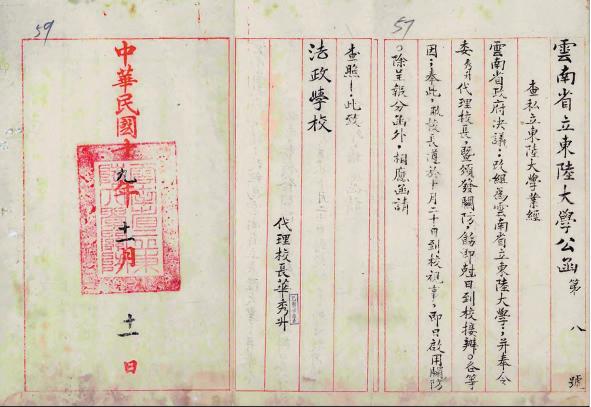 雲南省立東陸大學公函第八號
查私立東陸大學業經
雲南省政府決議:改組為雲南省立東陸大學;并奉令
委秀升代理校長,暨頒發關防,飭即尅日到校接辦。各等
因;奉此,敝校長遵於十月二十日到校視事,即日啟用關防
。除呈報分函外,相應函請
查照!此致
法政學校
代理校長華秀升
中華民國十九年十一月十一日
57
59